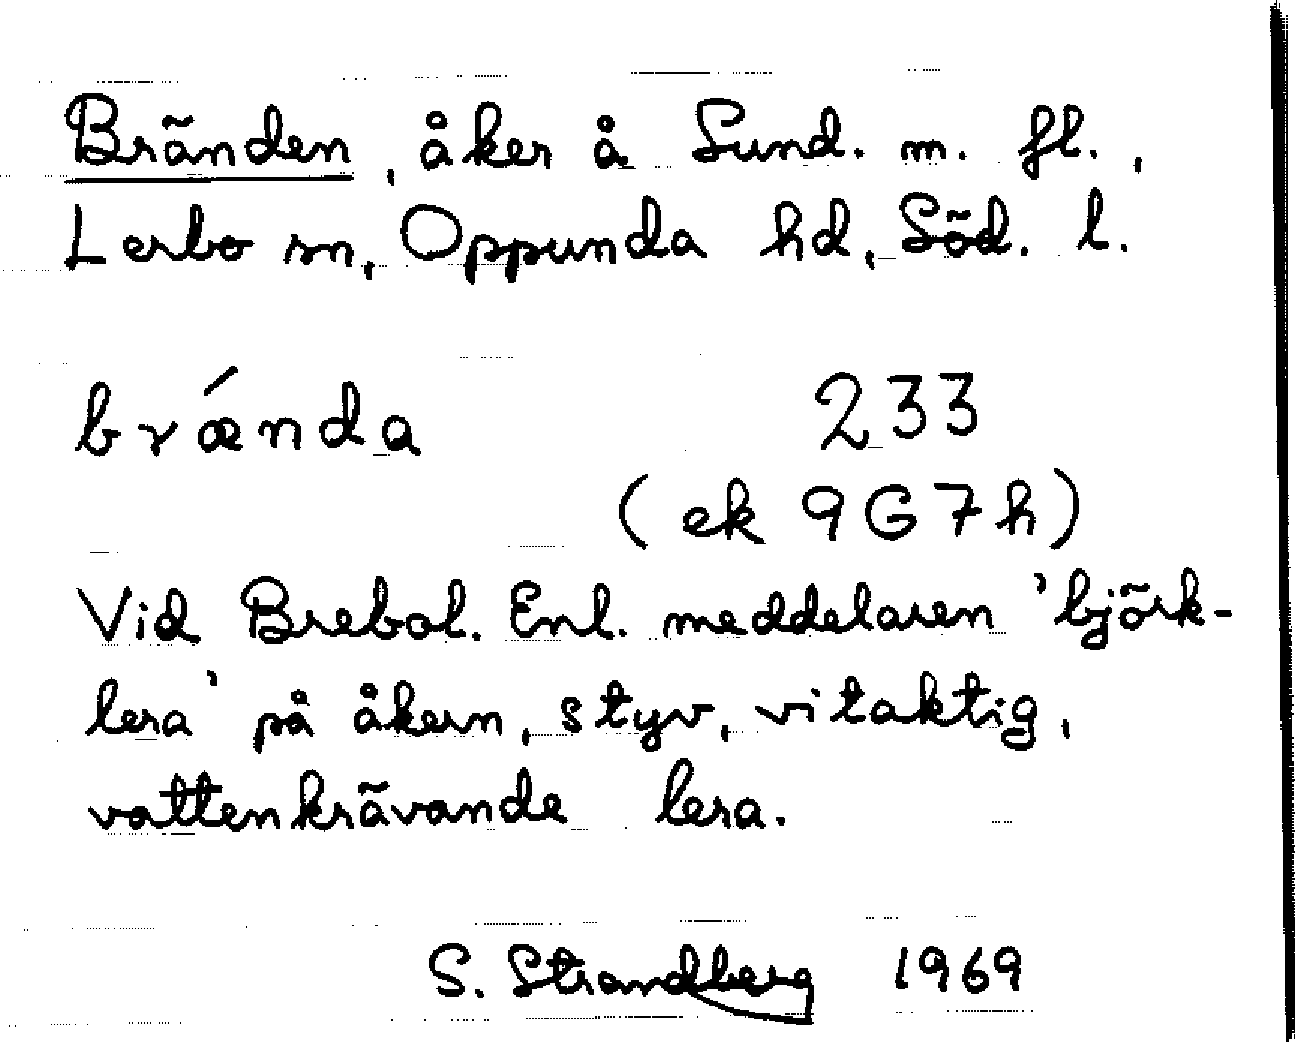 Bränden, åker å Sund. m. fl.,
Lerbo sn, Oppunda hd, Söd. l.
brǽnda 233
(ek 9G7h)
Vid Brebol. Enl. meddelaren 'björk-
lera' på åkern, styv, vitaktig,
vattenkrävande lera.
S. Strandberg 1969